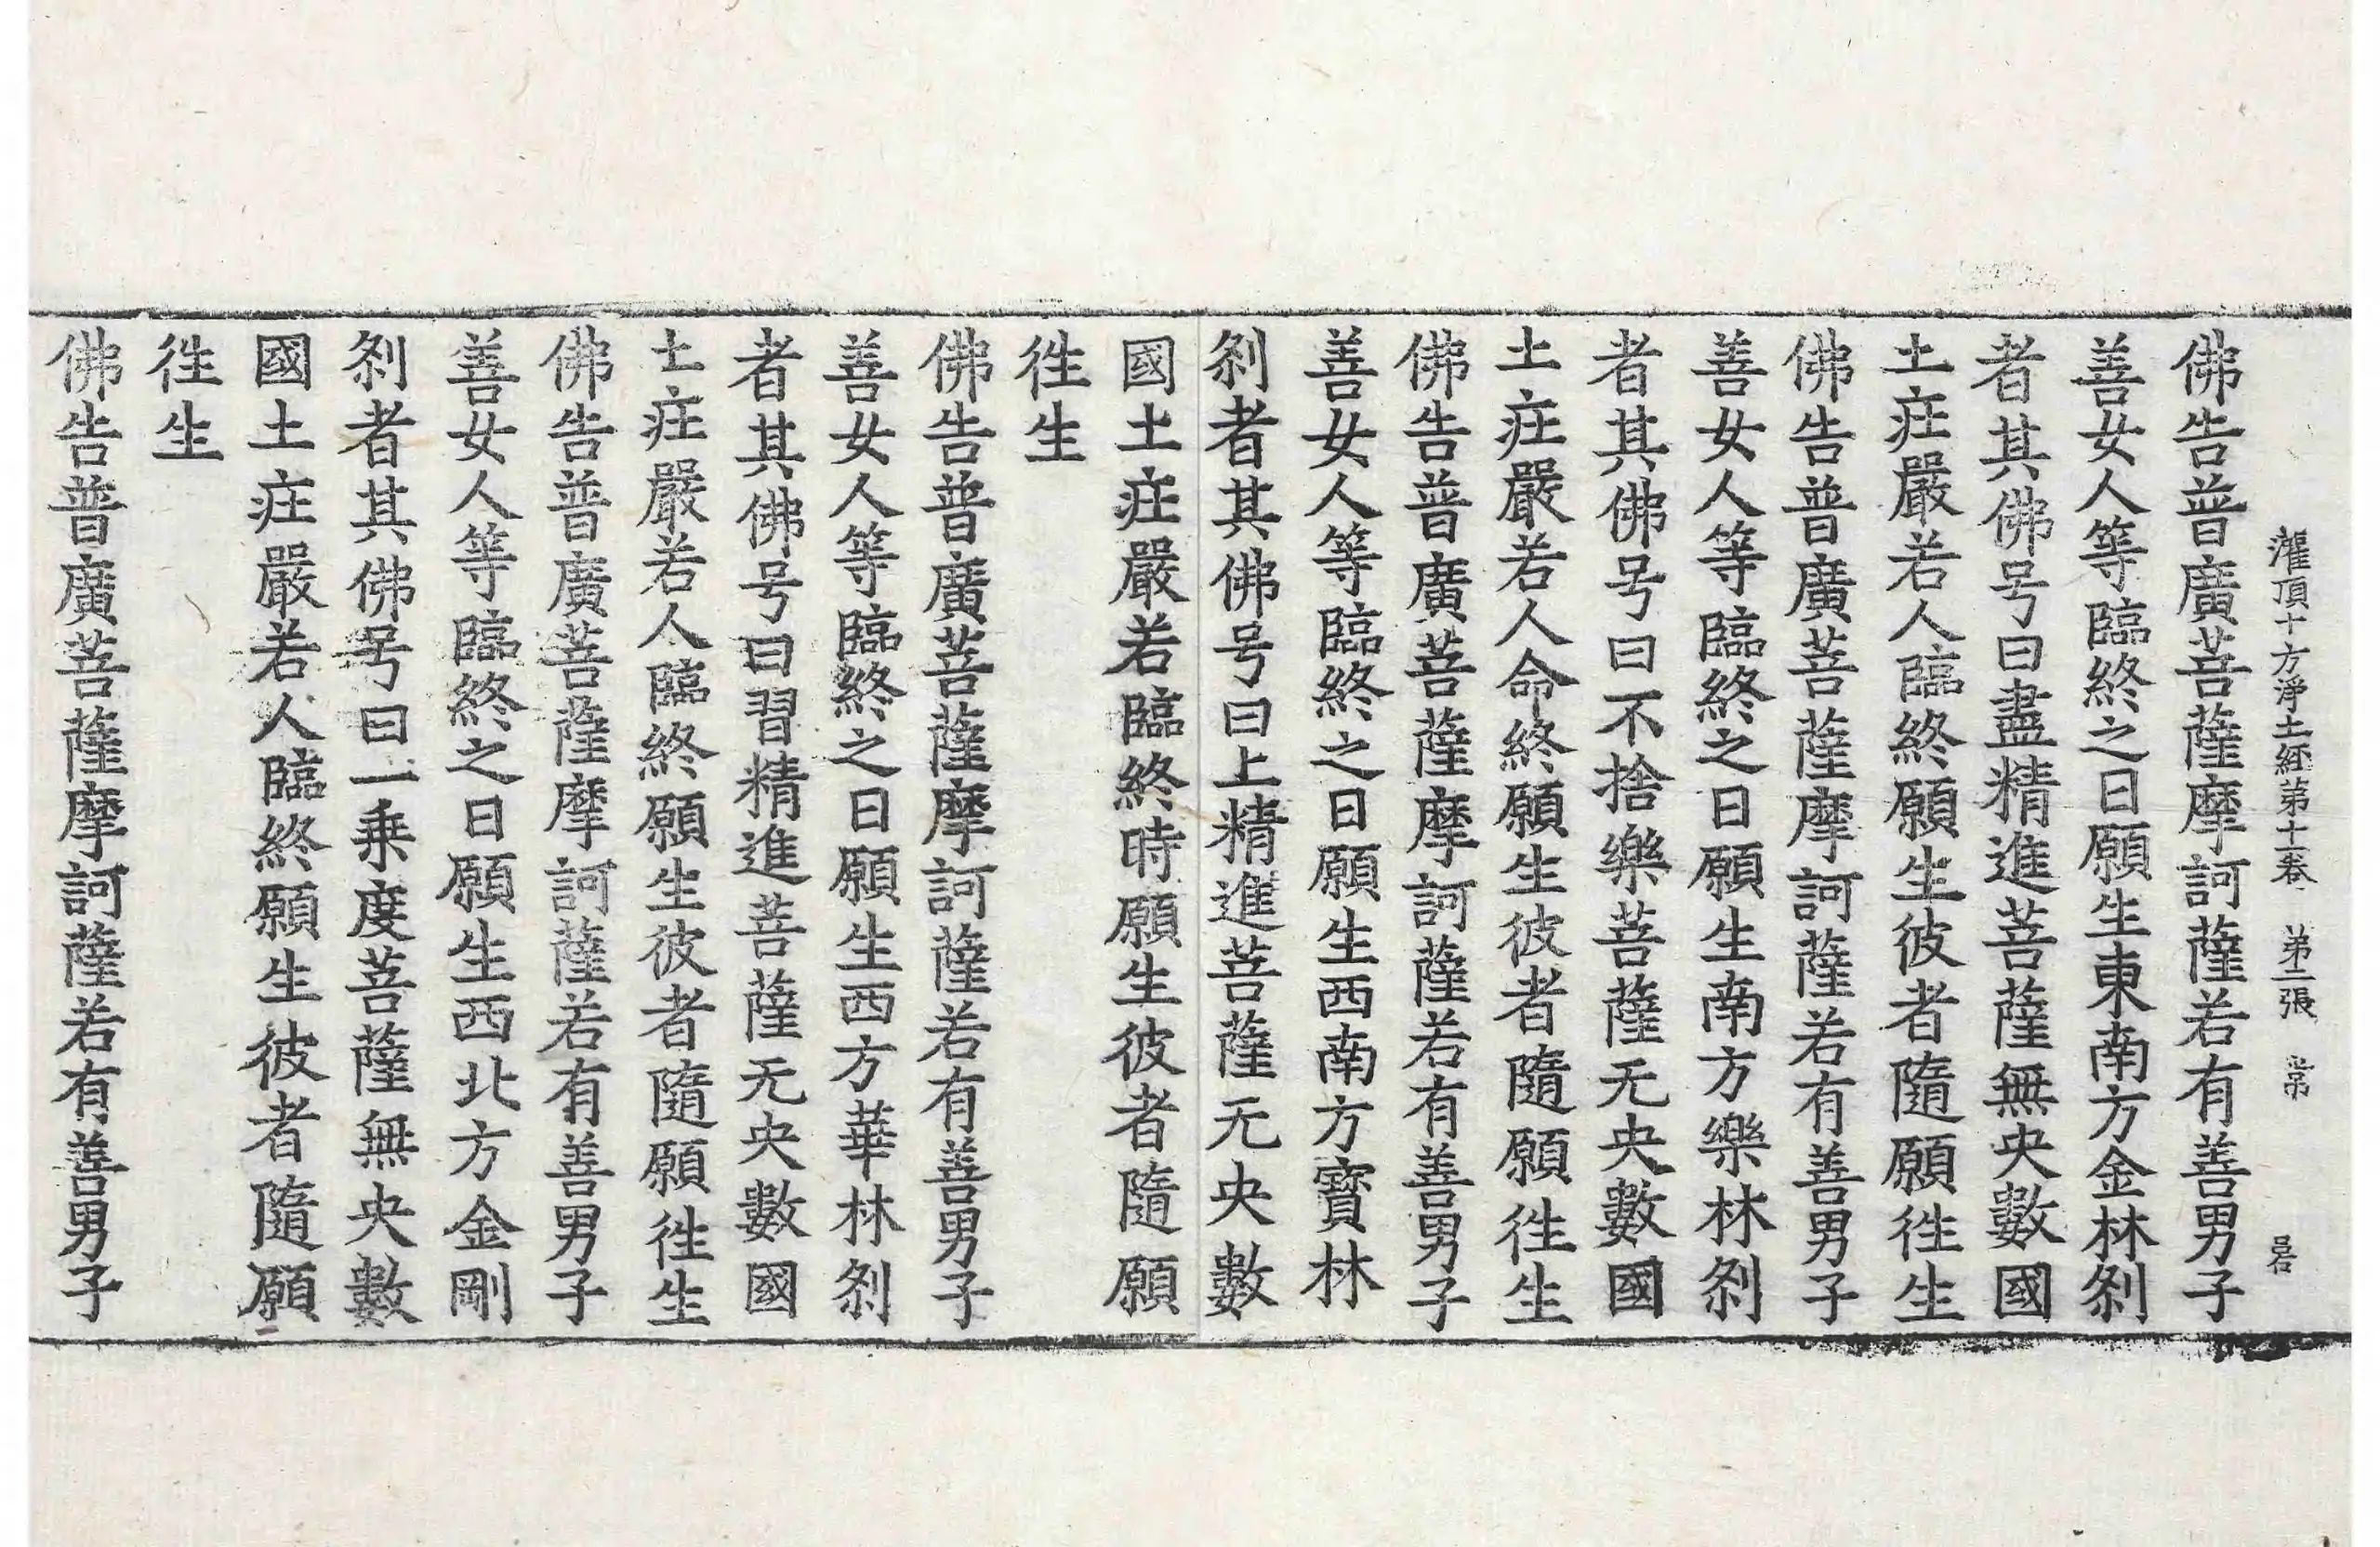 灌頂十方淨土経苐十一卷 苐二張 常
佛告普廣菩薩摩訶薩若有善男子
善女人等臨終之日願生東南方金林刹
者其佛号曰盡精進菩薩無央數國
土㽵嚴若人臨終願生彼者隨願徃生
佛告普廣菩薩摩訶薩若有善男子
善女人等臨終之日願生南方樂林刹
者其佛号曰不捨樂菩薩无央數國
土㽵嚴若人命終願生彼者隨願徃生
佛告普廣菩薩摩訶薩若有善男子
善女人等臨終之日願生西南方寳林
刹者其佛号曰上精進菩薩无央數
國土㽵嚴若臨終時願生彼者隨願
徃生
佛告普廣菩薩摩訶薩若有善男子
善女人等臨終之日願生西方華林刹
者其佛号曰習精進菩薩无央數國
土㽵嚴若人臨終願生彼者隨願徃生
佛告普廣菩薩摩訶薩若有善男子
善女人等臨終之日願生西北方金剛
刹者其佛号曰一乗度菩薩無央數
國土㽵嚴若人臨終願生彼者隨願
徃生
佛告普廣菩薩摩訶薩若有善男子